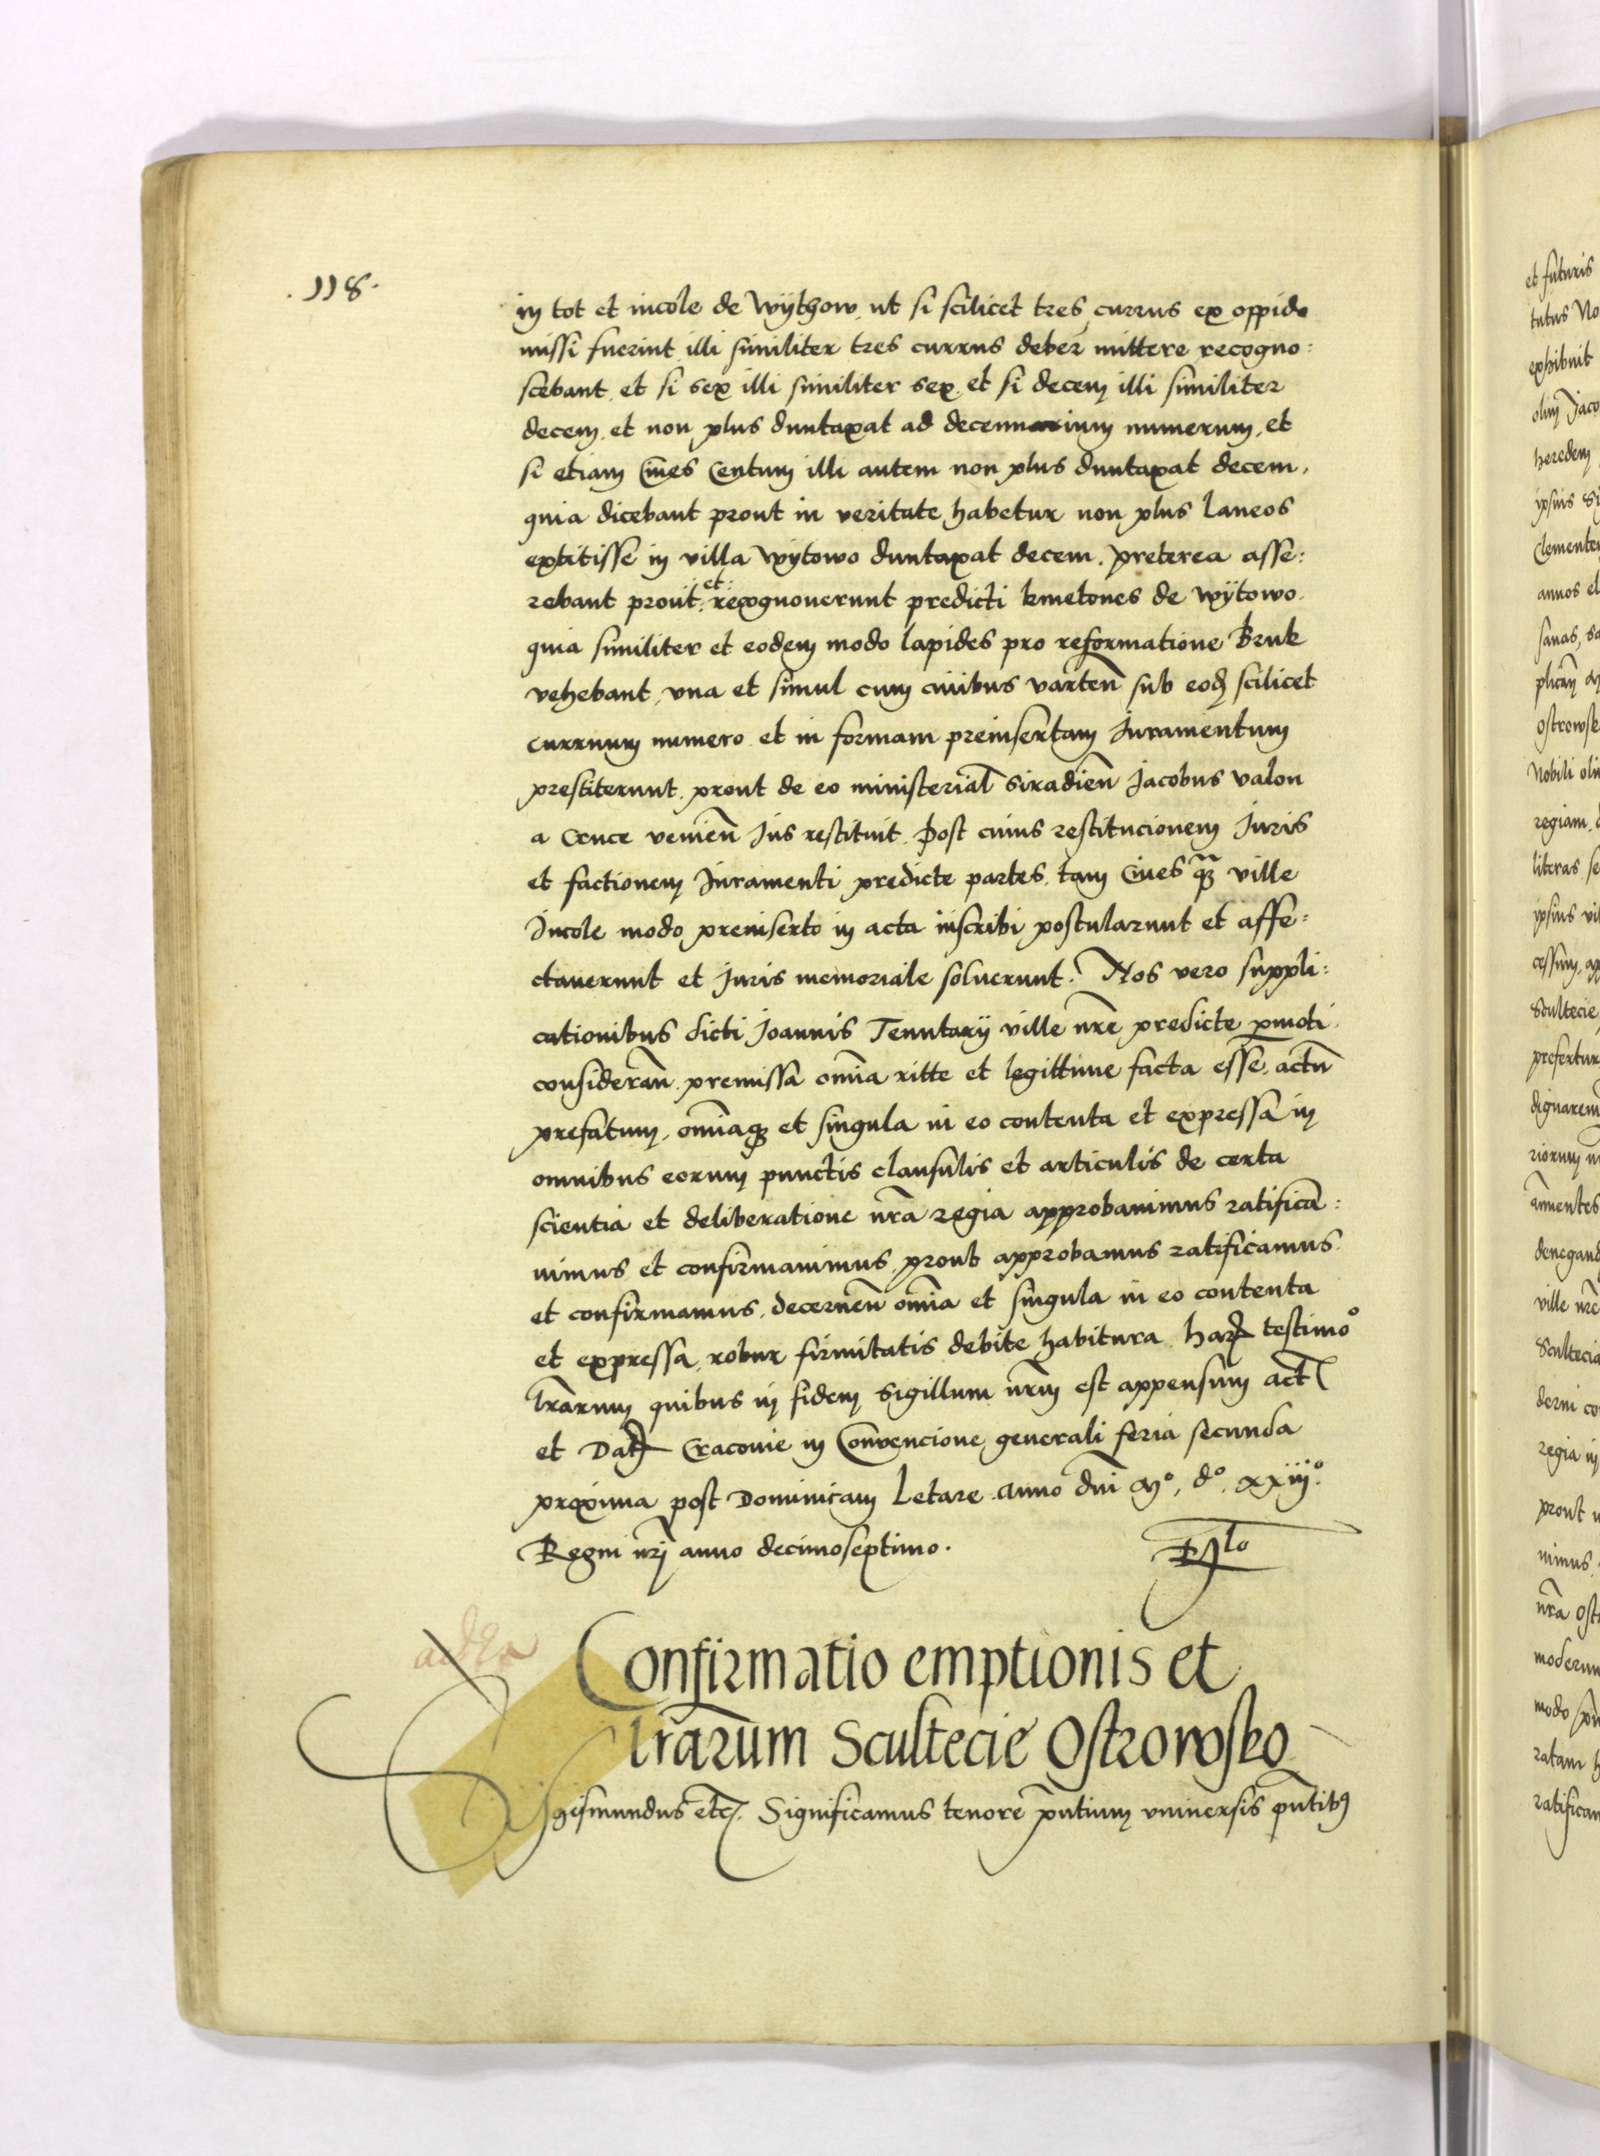 .118.
in tot et incole de Wÿthow. ut si scilicet tres currus ex oppido
missi fuerint illi similiter tres currus deber̃ mittere recogno:
scebant. et si sex illi similiter sex. et si decem illi similiter
decem. et non plus duntaxat ad decennarium numerum. et
si etiam Ciues Centum illi autem non plus duntaxat decem.
quia dicebant prout in veritate habetur non plus Laneos
extitisse in villa Wÿtowo duntaxat decem. preterea asse:
rebant prout et recognouerunt predicti kmetones de Wÿtowo.
quia similiter et eodem modo lapides pro reformatione Bruk
vehebant, vna et simul cum ciuibus varteñ sub eođ scilicet
curruum numero. et in formam preinsertam Juramentum
prestiterunt. prout de eo ministerial̃ Siradieñ Jacobus valon
a Cruce venieñ Jus restituit. Post cuius restitucionem Juris
et factionem Juramenti predicte partes. tam Ciues q̃ȝ ville
Incole modo preinserto in acta inscribi postularunt et affe:
ctauerunt et Juris memoriale soluerunt. Nos vero suppli:
cationibus dicti Joannis Tenutarÿ ville nr̃e predicte pmoti
considerañ. premissa om̃ia ritte et legittime facta esse. actũ
prefatum. om̃iaqȝ et singula in eo contenta et expressa in
omnibus eorum punctis clausulis et articulis de certa
scientia et deliberatione nr̃a regia approbauimus ratifica:
uimus et confirmauimus. prout approbamus ratificamus
et confirmamus. decerneñ om̃ia et singula in eo contenta
et expressa, robur firmitatis debite habitura. Harꝝ testimo°
lr̃arum quibus in fidem Sigillum nr̃m est appensum Act̃
et Datꝝ Cracouie in Conuencione generali feria secunda
proxima post Dominicam Letare. Anno dñi M°. d°. xxiij°.
Regni nrĩ anno decimoseptimo.
Confirmatio emptionis et
lr̃arum Scultecie Ostrowsko
Sigismundus etc̃. Significamus tenore p̃ntium vniuersis p̃ntibꝫ